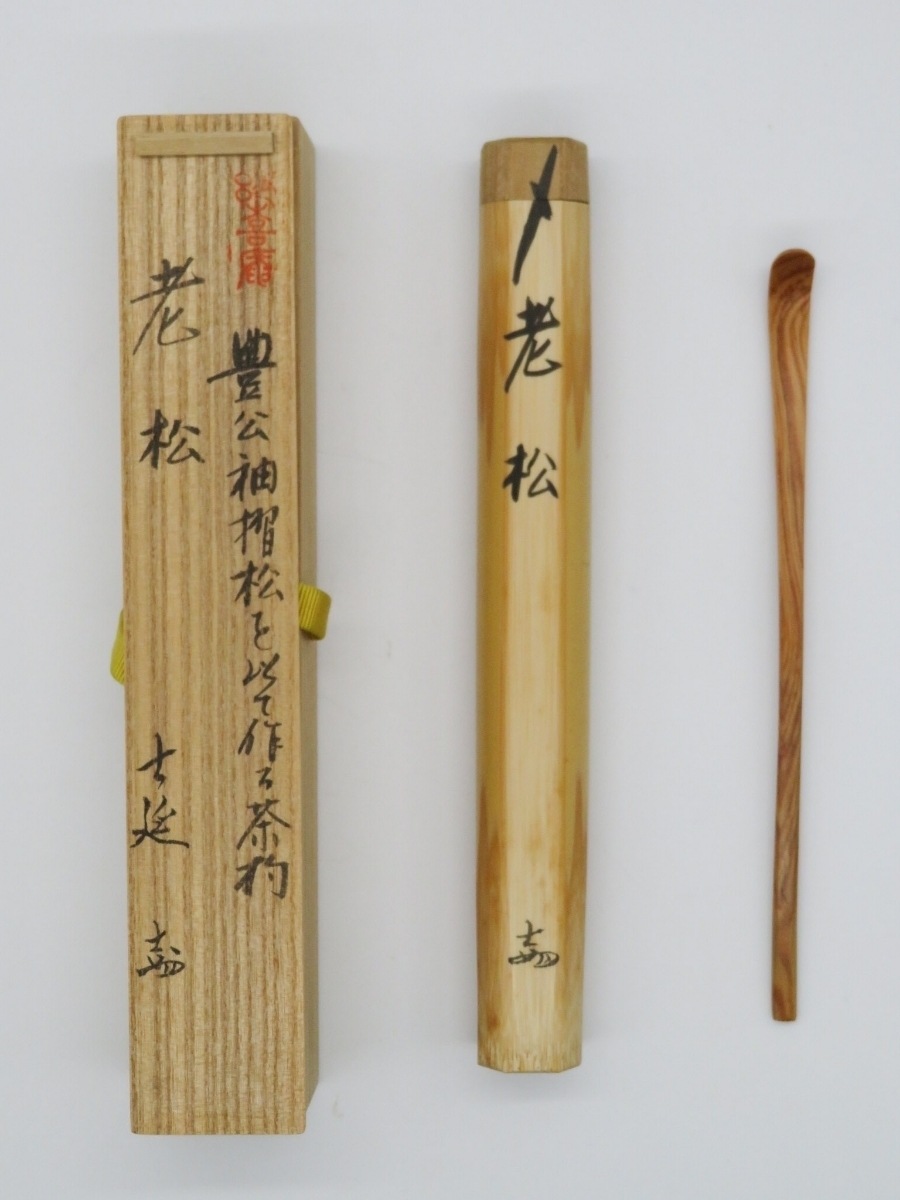 豊公袖摺松を以て作る茶杓
老松
老松